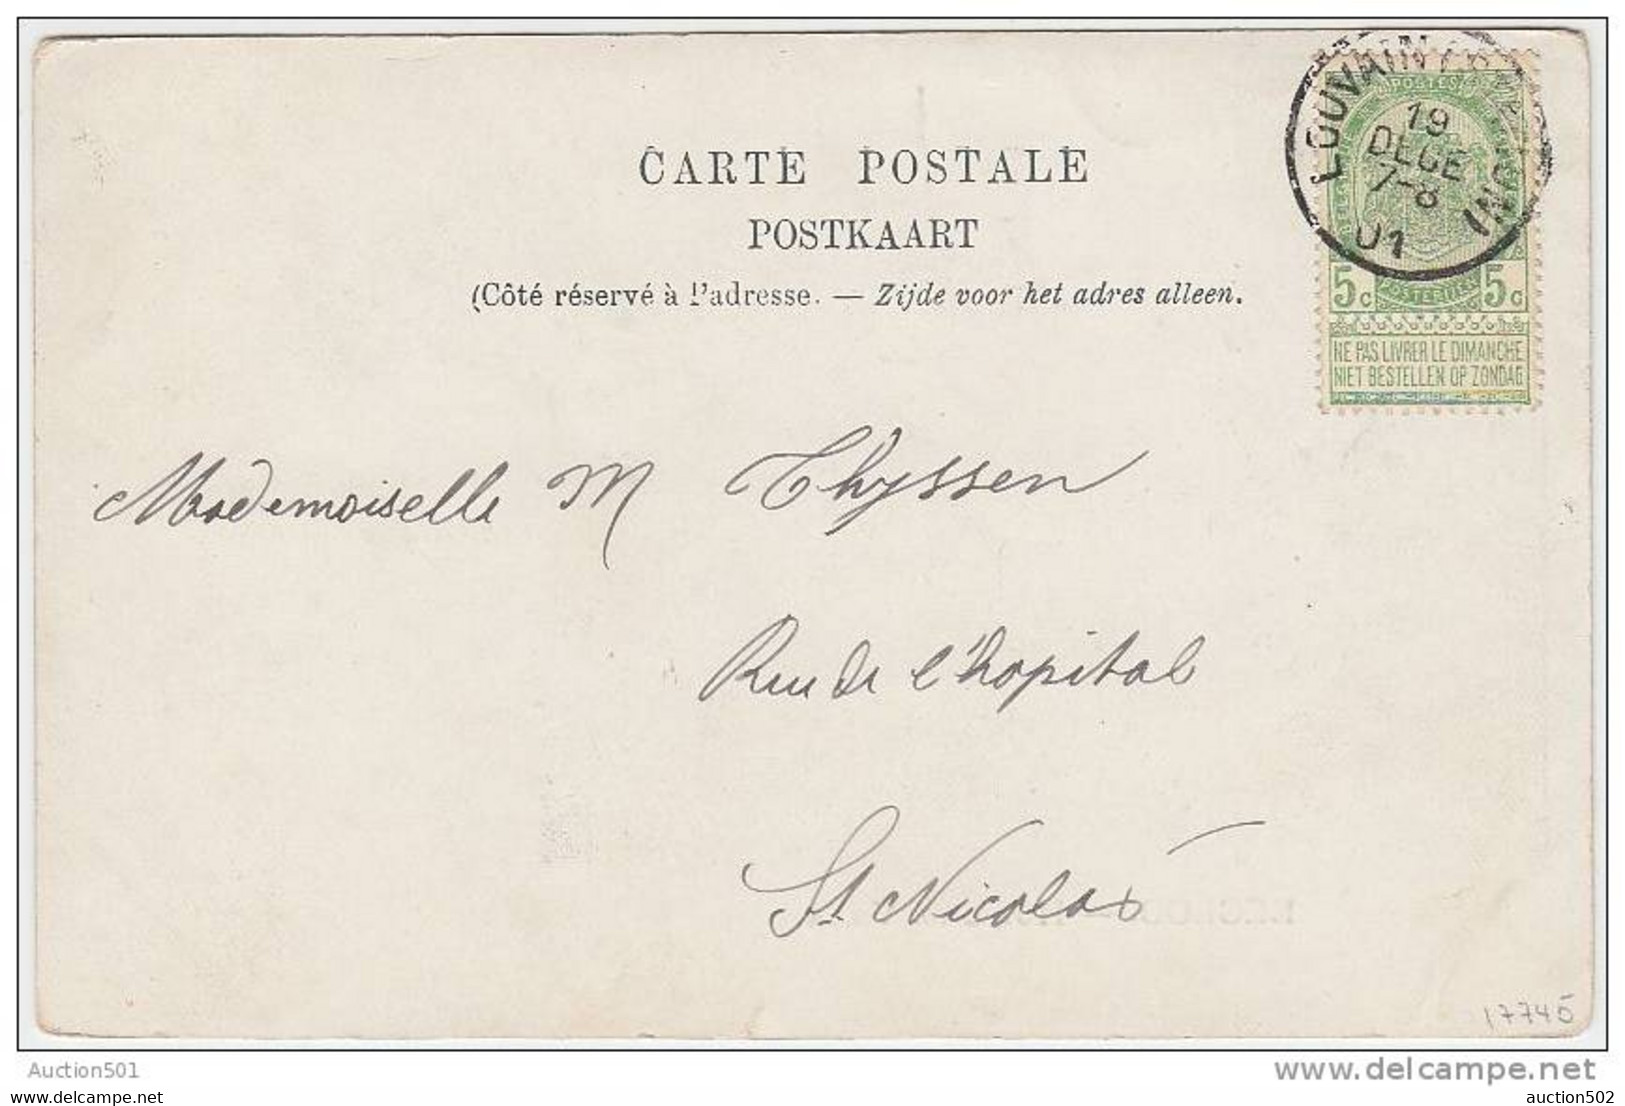 CARTE POSTALE
POSTKAART
(Côté réservé à l'adresse. — Zijde voor het adres alleen.
LOUVAIN
19
DECE
7-8
01
POSTES
5c 5c
NE PAS LIVRER LE DIMANCHE
NIET BESTELLEN OP ZONDAG
Mademoiselle M Thyssen
Rue de l'hopital
St Nicolas
17745
Auction501
delcampe.net
auction502